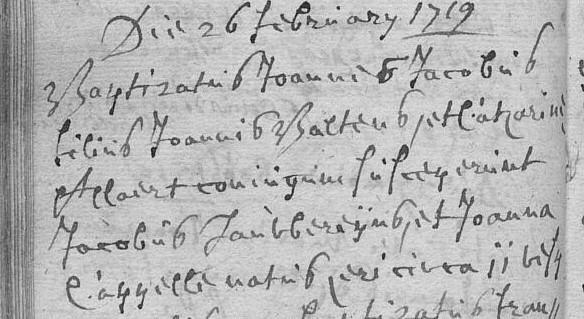 Die 26 february 1719
Baptizatus Joannes Jacobus
filius Joannis Baltens, et Catharinæ
Allaert coniugum susceperunt
Jacobus et Joanna
Cappelle natus heri circa 11 vesp
Baptizatus fran